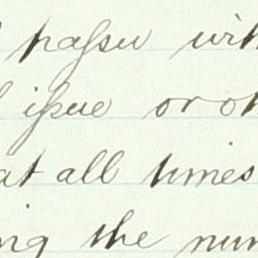 passu wit
issue or ot
at all times
ng the nu